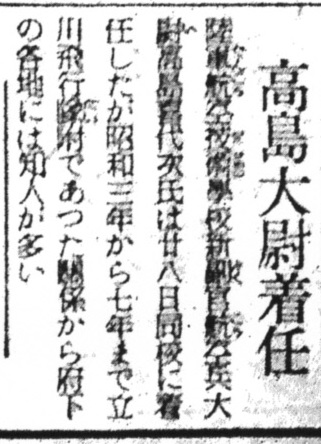 高島大尉着任
陸軍航空技術學校新副官航空兵大
尉高島喜代次氏は廿八日同校に着
任したが昭和三年から七年まで立
川飛行隊付であつた關係から府下
の各地には知人が多い